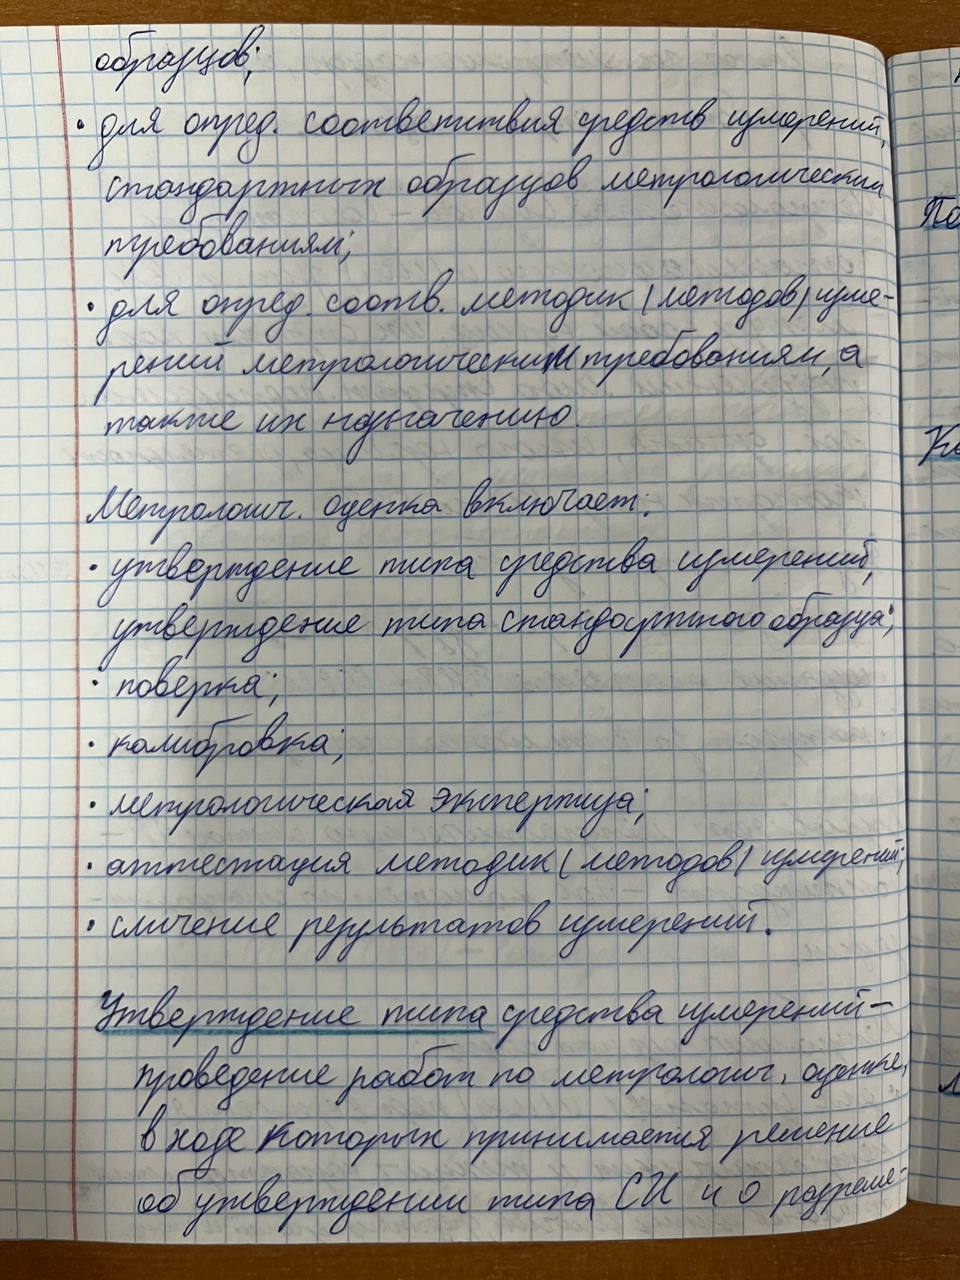 образцов;
• для опред. соответствия средств измерений,
стандартных образцов метрологическим
требованиям;
• для опред. соотв. методик (методов) изме-
рений метрологическим требованиям, а
также их назначению.
Метрологич. оценка включает:
• утверждение типа средства измерений,
утверждение типа стандартного образца;
• поверка;
• калибровка;
• метрологическая экспертиза;
• аттестация методик (методов) измерений;
• сличение результатов измерений.
Утверждение типа средства измерений –
проведение работ по метрологич. оценке,
в ходе которых принимается решение
об утверждении типа СИ и о разреше-
По
Ка